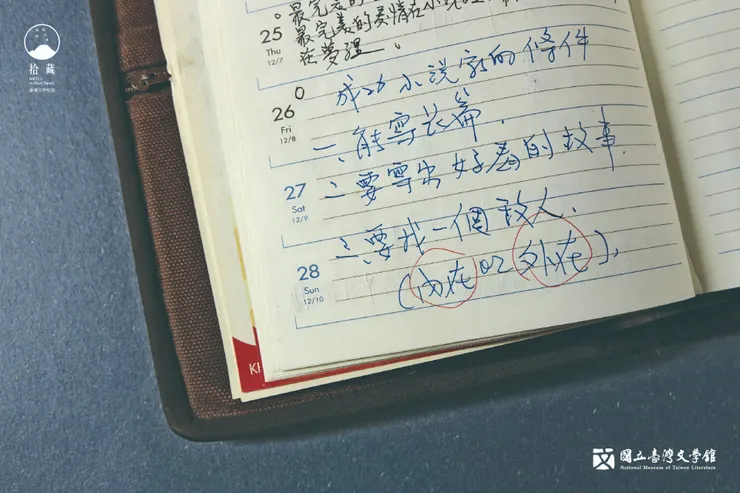 拾藏
。最完美的
最完美的愛情在小說裡
在夢裡。
25
Thu
12/7
成功小說家的條件
26
Fri
12/8
一、能寫長篇.
27
Sat
12/9
二、要寫出好看的故事.
三、要找一個敵人.
28
Sun
12/10
(內在 or 外在).
國立臺灣文學館
National Museum of Taiwan Literature